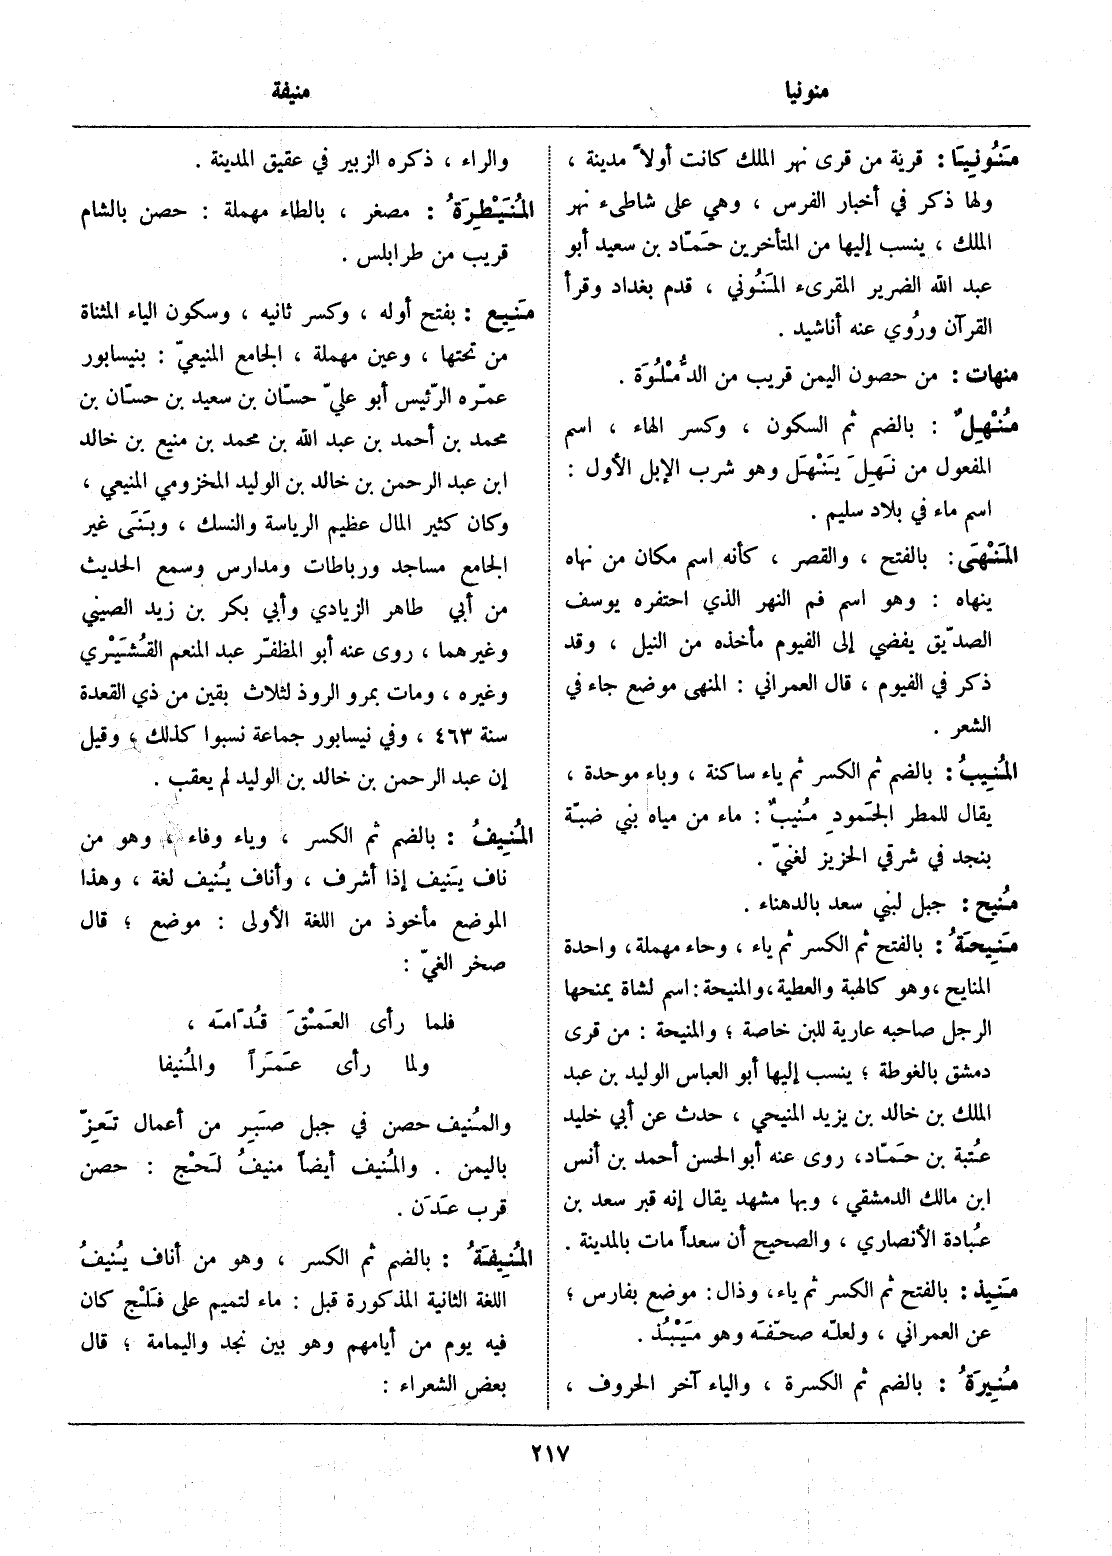 منونيا
منيفة
مَنُونِيَا : قرية من قرى نهر الملك كانت أولاً مدينة ،
ولها ذكر في أخبار الفرس ، وهي على شاطىء نهر
الملك ، ينسب إليها من المتأخرين حَمَّاد بن سعيد أبو
عبد الله الضرير المقرىء المَنُوني ، قدم بغداد وقرأ
القرآن ورُوي عنه أناشيد .
منهات : من حصون اليمن قريب من الدُّمْلُوَة .
مُنْهِلٌ : بالضم ثم السكون ، وكسر الهاء ، اسم
المفعول من نَهِلَ يَنْهَل وهو شرب الإبل الأول :
اسم ماء في بلاد سليم .
المَنْهَى : بالفتح ، والقصر ، كأنه اسم مكان من نهاه
ينهاه : وهو اسم فم النهر الذي احتفره يوسف
الصدّيق يفضي إلى الفيوم مأخذه من النيل ، وقد
ذكر في الفيوم ، قال العمراني : المنهى موضع جاء في
الشعر .
المُنِيبُ : بالضم ثم الكسر ثم ياء ساكنة ، وباء موحدة ،
يقال للمطر الجَمود مُنيبٌ : ماء من مياه بني ضبّة
بنجد في شرقي الحزيز لغنيّ .
مُنيح : جبل لبني سعد بالدهناء .
مَنِيحَةُ : بالفتح ثم الكسر ثم ياء ، وحاء مهملة ، واحدة
المنايح ، وهو كالهبة والعطية ، والمنيحة : اسم لشاة يمنحها
الرجل صاحبه عارية للبن خاصة ؛ والمنيحة : من قرى
دمشق بالغوطة ؛ ينسب إليها أبو العباس الوليد بن عبد
الملك بن خالد بن يزيد المنيحي ، حدث عن أبي خليد
عتبة بن حَمّاد ، روى عنه أبو الحسن أحمد بن أنس
ابن مالك الدمشقي ، وبها مشهد يقال إنه قبر سعد بن
عُبادة الأنصاري ، والصحيح أن سعداً مات بالمدينة .
مَنِيذ : بالفتح ثم الكسر ثم ياء ، وذال : موضع بفارس ؛
عن العمراني ، ولعلّه صحّفَه وهو مَيْبُذ .
مُنِيرَةُ : بالضم ثم الكسرة ، والياء آخر الحروف ،
والراء ، ذكره الزبير في عقيق المدينة .
المُنَيْطِرَةُ : مصغر ، بالطاء مهملة : حصن بالشام
قريب من طرابلس .
مَنِيع : بفتح أوله ، وكسر ثانيه ، وسكون الياء المثناة
من تحتها ، وعين مهملة ، الجامع المنيعيّ : بنيسابور
عمّره الرّئيس أبو عليّ حسّان بن سعيد بن حسّان بن
محمد بن أحمد بن عبد الله بن محمد بن منيع بن خالد
ابن عبد الرحمن بن خالد بن الوليد المخزومي المنيعي ،
وكان كثير المال عظيم الرياسة والنسك ، وبَنَى غير
الجامع مساجد ورباطات ومدارس وسمع الحديث
من أبي طاهر الزيادي وأبي بكر بن زيد الصيني
وغيرهما ، روى عنه أبو المظفّر عبد المنعم القُشَيْري
وغيره ، ومات بمرو الروذ لثلاث بقين من ذي القعدة
سنة ٤٦٣ ، وفي نيسابور جماعة نسبوا كذلك ، وقيل
إن عبد الرحمن بن خالد بن الوليد لم يعقب .
المُنِيفُ : بالضم ثم الكسر ، وياء وفاء ، وهو من
ناف يَنيف إذا أشرف ، وأناف يُنيف لغة ، وهذا
الموضع مأخوذ من اللغة الأولى : موضع ؛ قال
صخر الغيّ :
فلما رأى العَمْقَ قُدّامَه ،
ولما رأى عَمَراً والمُنيفا
والمُنيف حصن في جبل صَبِر من أعمال تَعِزّ
باليمن . والمُنيف أيضاً منيفُ لَحْج : حصن
قرب عَدَن .
المُنِيفَةُ : بالضم ثم الكسر ، وهو من أناف يُنيفُ
اللغة الثانية المذكورة قبل : ماء لتميم على فَلْج كان
فيه يوم من أيامهم وهو بين نجد واليمامة ؛ قال
بعض الشعراء :
٢١٧